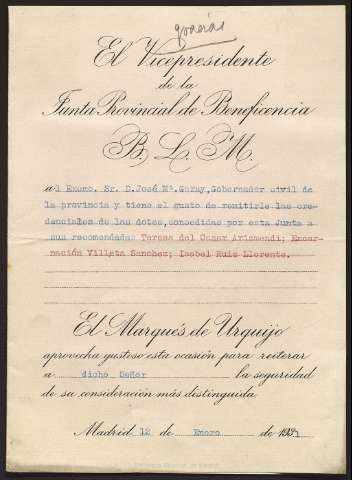 gracias
El Vicepresidente
de la
Junta Provincial de Beneficencia
B. L. M.
al Excmo. Sr. D. José Mª. Garay, Gobernador civil de
la provincia y tiene el gusto de remitirle las cre-
denciales de las dotes, concedidas por esta Junta a
sus recomendadas Teresa del Cazar Arizmendi; Encar-
nación Villeta Sanchez; Isabel Ruiz Llorente.
El Marqués de Urquijo
aprovecha gustoso esta ocasión para reiterar
a dicho Señor la seguridad
de su consideración más distinguida.
Madrid 12 de Enero de 1931